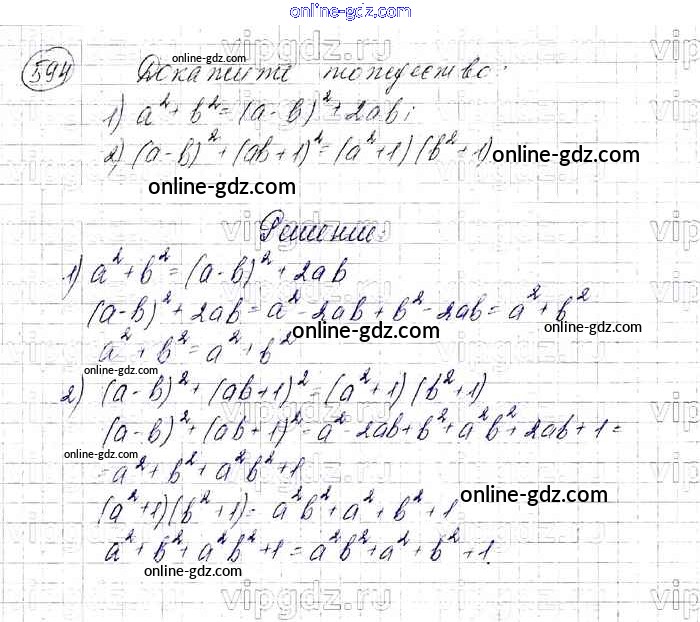 online-gdz.com
594 Докажите тождество:
1) a² + b² = (a - b)² + 2ab;
2) (a - b)² + (ab + 1)² = (a² + 1)(b² + 1) online-gdz.com
online-gdz.com
Решение:
1) a² + b² = (a - b)² + 2ab
(a - b)² + 2ab = a² - 2ab + b² - 2ab = a² + b²
online-gdz.com
online-gdz.com
a² + b² = a² + b²
online-gdz.com
2) (a - b)² + (ab + 1)² = (a² + 1)(b² + 1)
(a - b)² + (ab + 1)² = a² - 2ab + b² + a²b² + 2ab + 1 =
online-gdz.com
= a² + b² + a²b² + 1
online-gdz.com
(a² + 1)(b² + 1) = a²b² + a² + b² + 1
a² + b² + a²b² + 1 = a²b² + a² + b² + 1.
online-gdz.com
vipgdz.ru